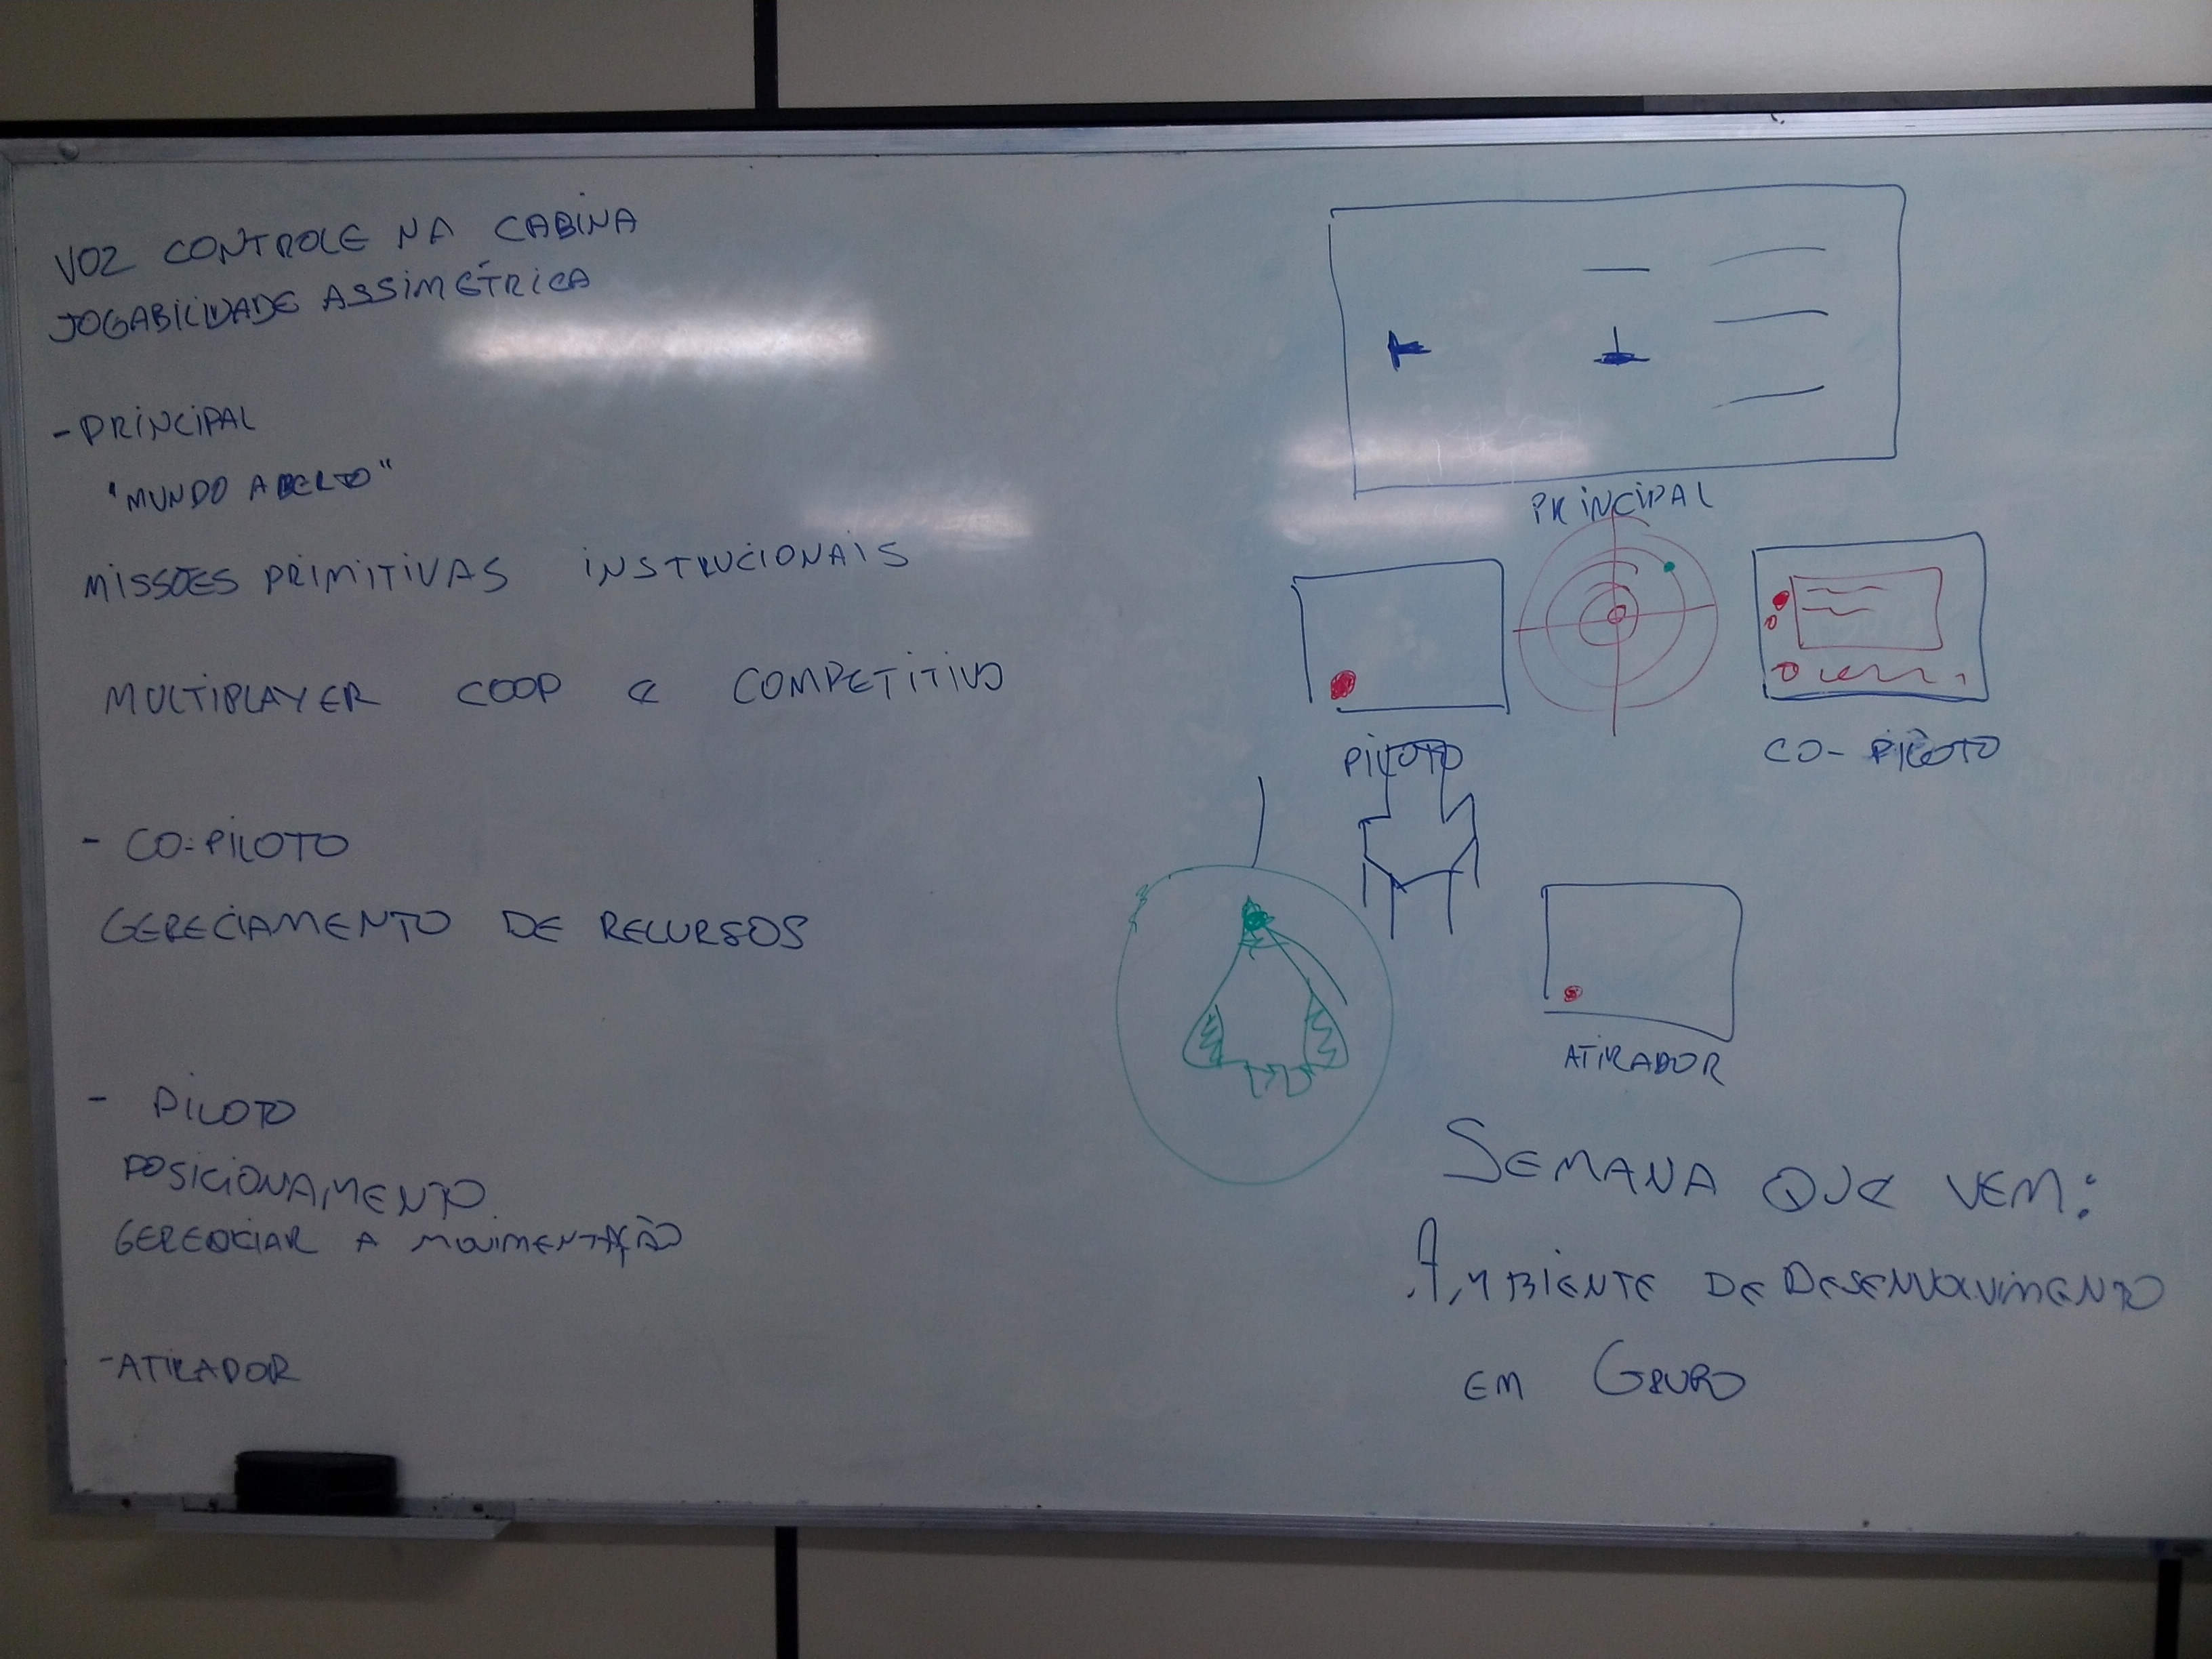 VOZ CONTROLE NA CABINA
JOGABILIDADE ASSIMÉTRICA
- PRINCIPAL
"MUNDO ABERTO"
MISSOES PRIMITIVAS INSTRUCIONAIS
MULTIPLAYER COOP E COMPETITIVO
- CO-PILOTO
GERECIAMENTO DE RECURSOS
- PILOTO
POSICIONAMENTO
GERENCIAR A MOVIMENTAÇÃO
- ATIRADOR
PRINCIPAL
PILOTO
CO-PILOTO
ATIRADOR
SEMANA QUE VEM:
AMBIENTE DE DESENVOLVIMENTO
EM GRUPO